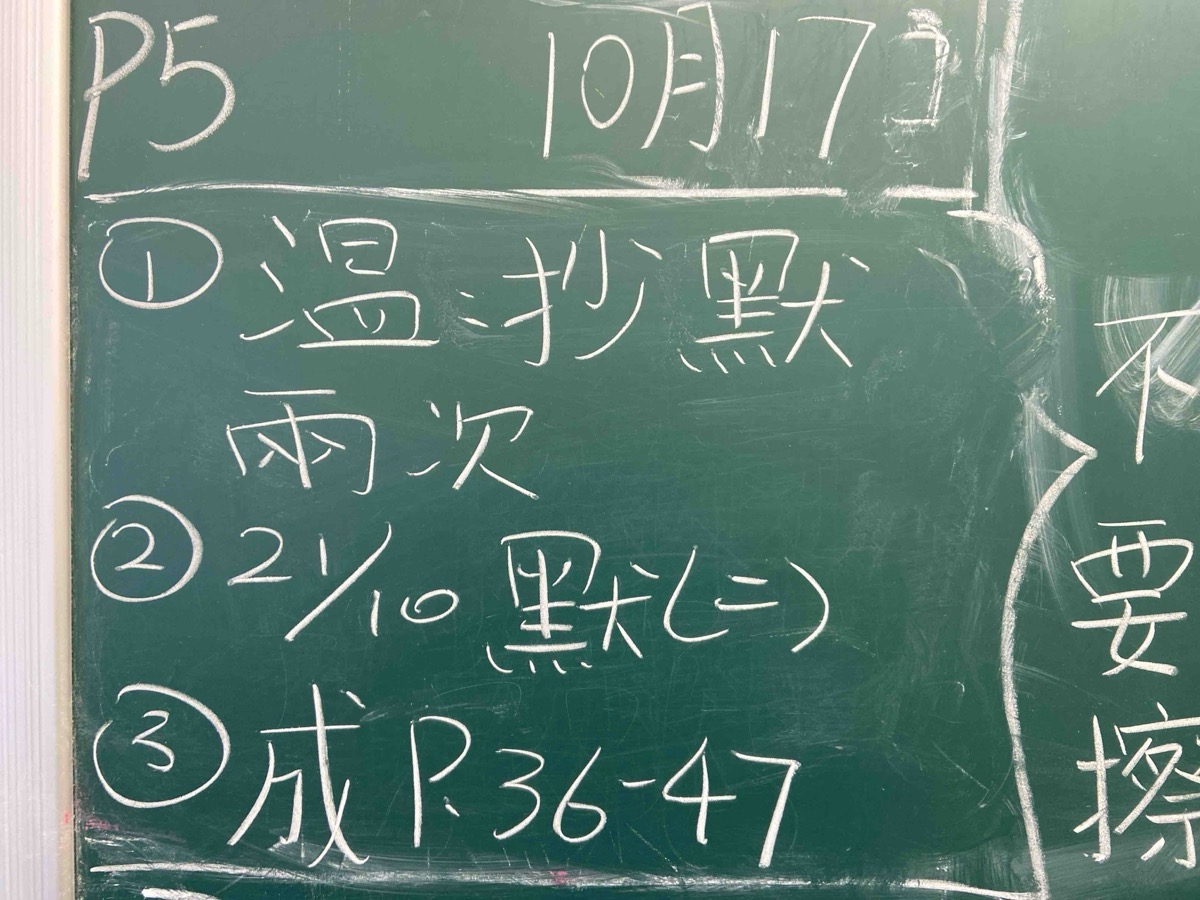 P5 10月17日
① 温：抄默
兩次
② 21/10 默(二)
③ 成 P.36-47
不
要
擦